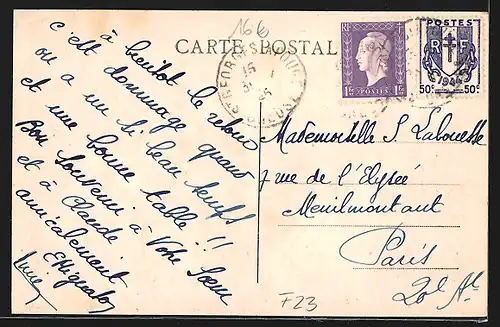 166
CARTE POSTALE
POSTES
RF
50c 50c
RF
1F POSTES 1F
à bientôt le retour
c'est dommage quand
on a un si beau temps
et une bonne table !!
Bon souvenir à Votre Sœur
et à Claude
amicalement
Mademoiselle S. Labousse
7 rue de l'Elysée
Menilmontant
Paris
20e Ar
F23